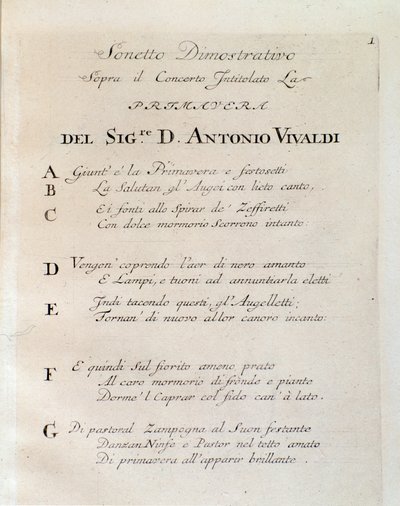 1
Sonetto Dimostrativo
Sopra il Concerto Intitolato La
PRIMAVERA
DEL SIG.re D. ANTONIO VIVALDI
A Giunt' é la Primavera e festosetti
B La Salutan gl' Augei con lieto canto,
C E i fonti allo Spirar de' Zeffiretti
Con dolce mormorio Scorrono intanto.
D Vengon' coprendo l'aer di nero amanto
E Lampi, e tuoni ad annuntiarla eletti
E Indi tacendo questi, gl' Augelletti;
Tornan' di nuovo al lor canoro incanto:
F E quindi Sul fiorito ameno prato
Al caro mormorio di fronde e piante
Dorme 'l Caprar col fido can' à lato.
G Di pastoral Zampogna al Suon festante
Danzan Ninfe e Pastor nel tetto amato
Di primavera all' apparir brillante.